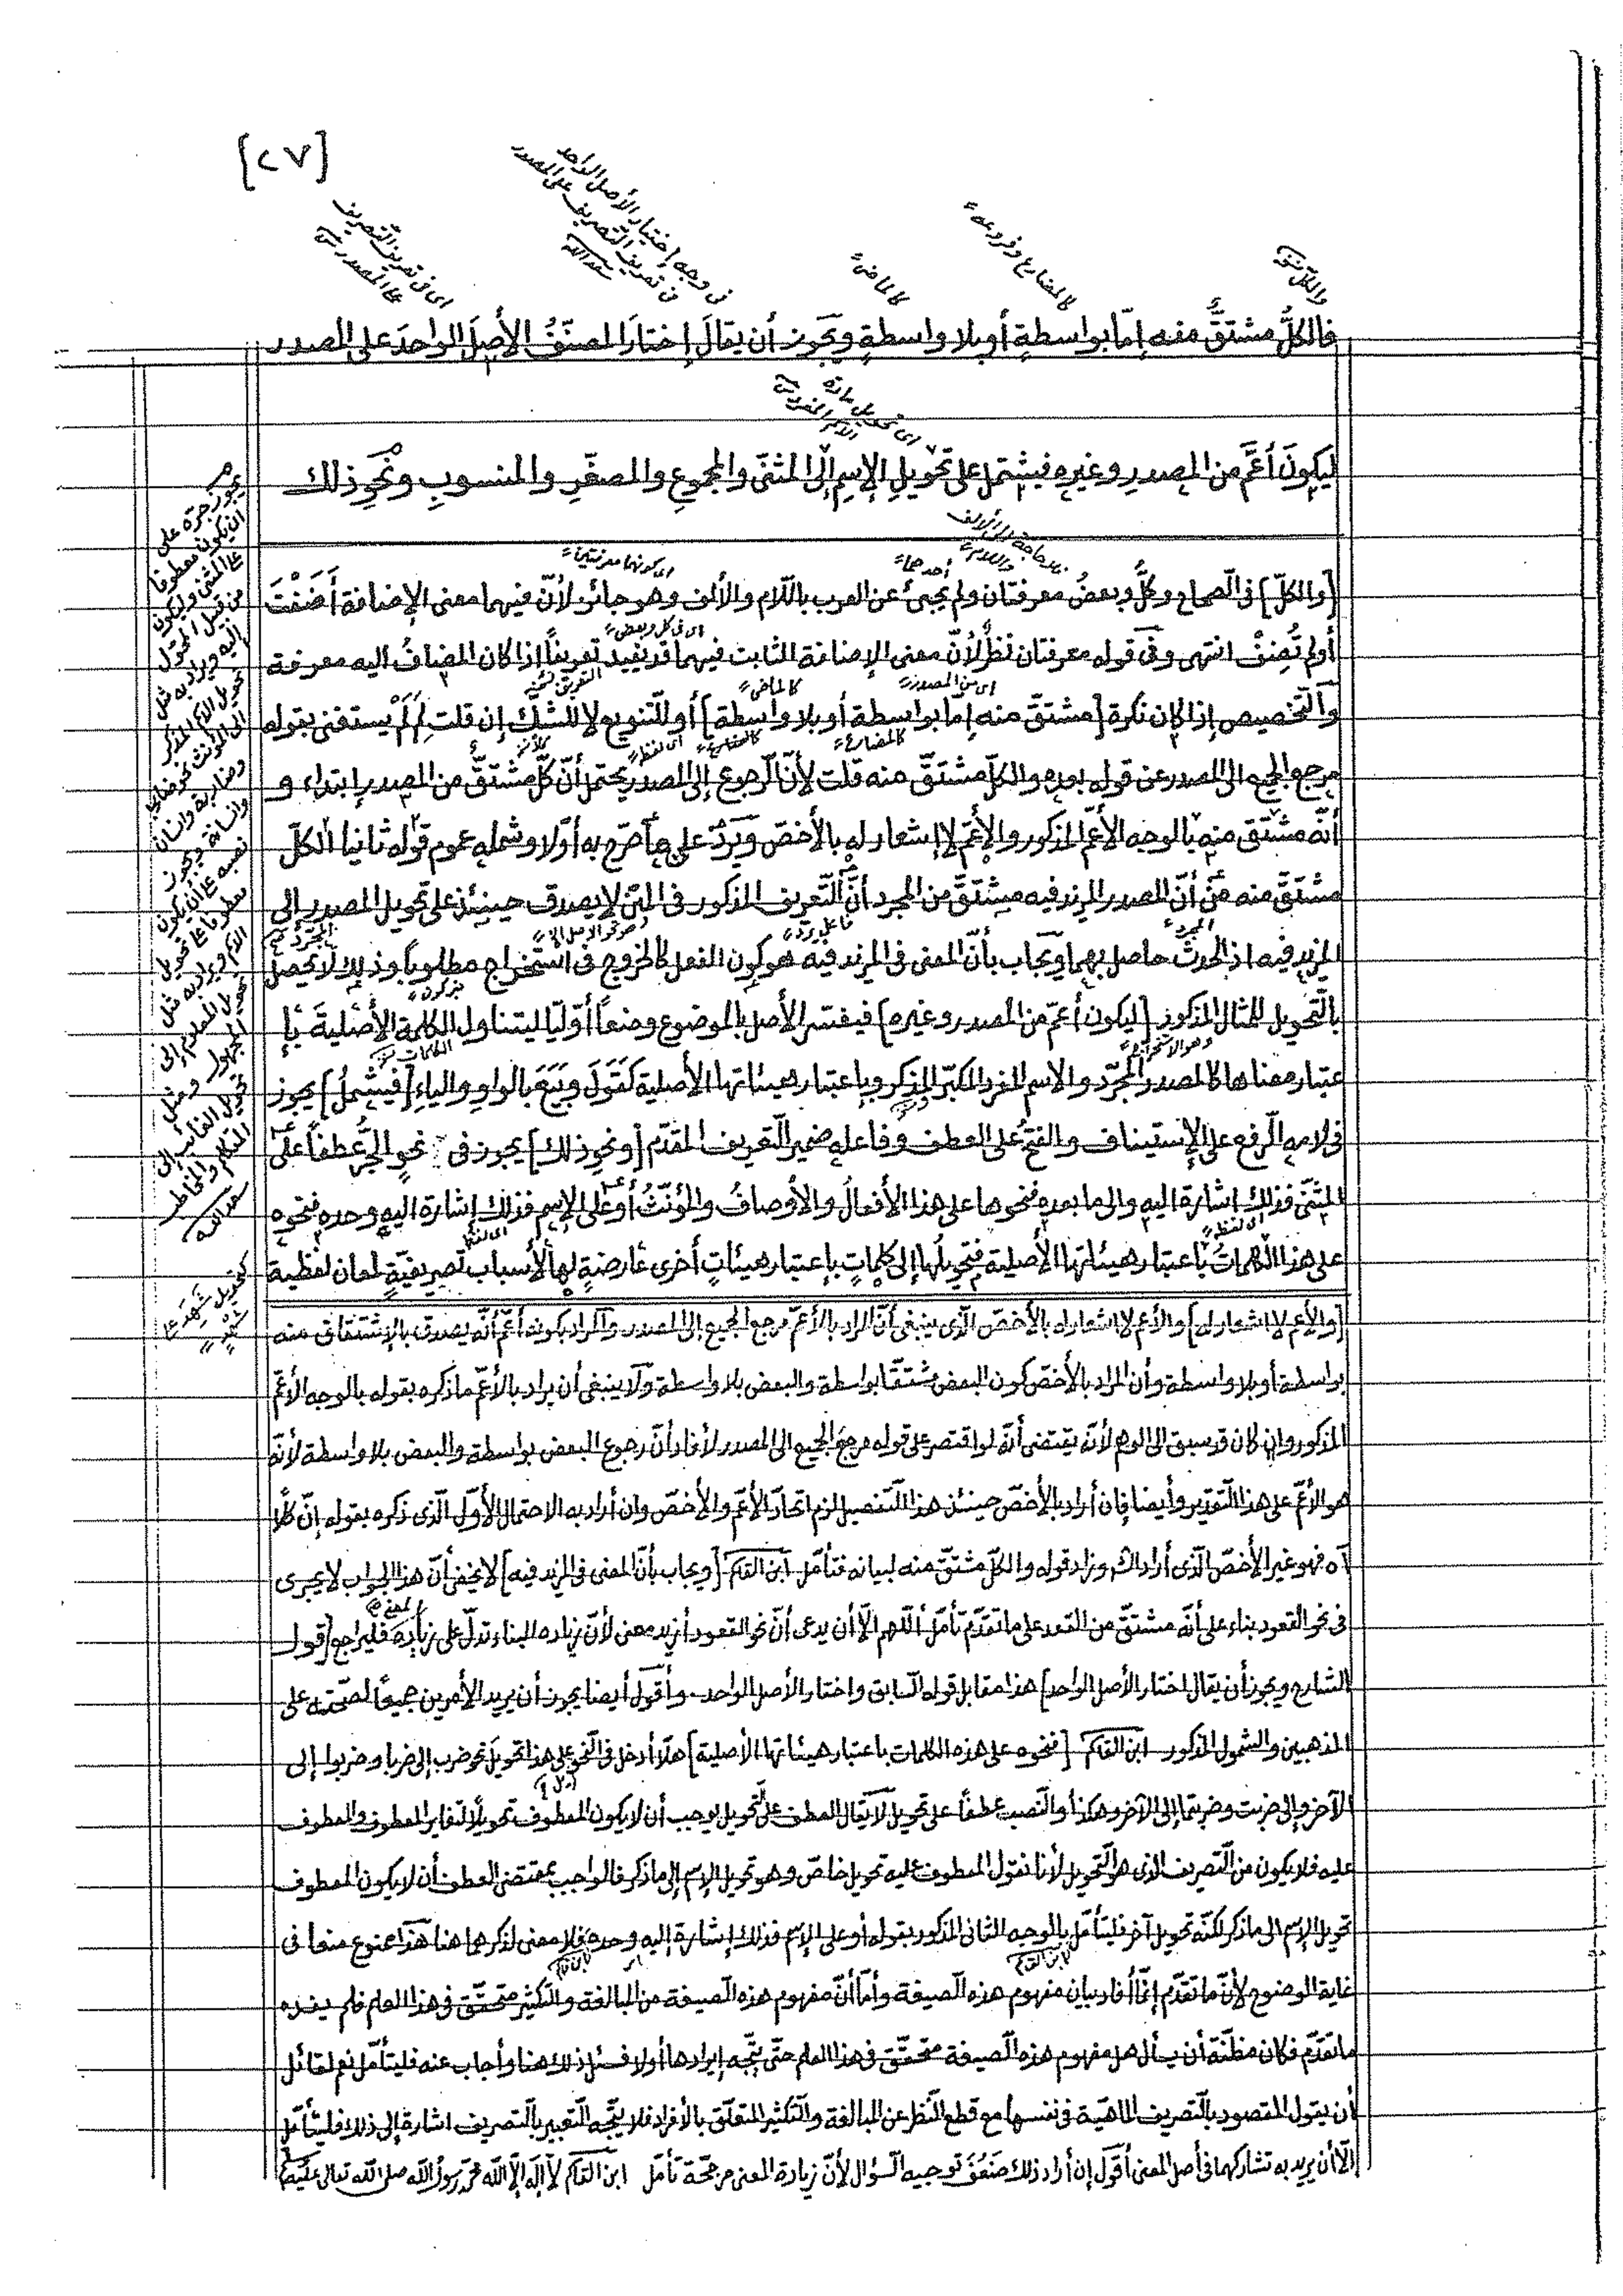 [٢٧]
والكل مشتق
كالمضارع وفروعه
كالماضى
فى وجه إختيار الأصل الواحد
فى تعريف التصريف على المصدر
سعد الله
اى فى تعريف التصريف
على المصدر
فالكلُّ مشتقٌّ منه إمّا بواسطةٍ أو بلا واسطةٍ ويجوز أن يقالَ إختارَ المصنّفُ الأصلَ الواحدَ على المصدر
ليكونَ أعمَّ من المصدرِ وغيرِه فيشتمل على تحويلِ الإسمِ إلى المثنّى والمجموعِ والمصغّرِ والمنسوبِ ونحوِ ذلك
[والكلّ] فى الصحاح وكلّ وبعضُ معرفتان ولم يجئ عن العرب باللّام والألف وهو جائز لأنّ فيهما معنى الإضافة أَضَفْتَ
أولم تُضِفْ انتهى وفى قوله معرفتان نظر لأنّ معنى الإضافة الثابت فيهما قد يفيد تعريفاً إذا كان المضافُ اليه معرفة
والتّخصيص إذا كان نكرة [مشتقّ منه إما بواسطة أو بلا واسطة] أو للتنويع لا للشك إن قلت لِمَ لَمْ يستغنى بقوله
مرجع الجميع الى المصدر عن قوله بعده والكلّ مشتقّ منه قلت لأنّ الرجوع إلى المصدر يحتمل أنّ كلّ مشتقّ من المصدر إبتداء و
أنّه مشتق منه بالوجه الأعمّ المذكور والأعمّ لا إشعار له بالأخصّ ويَرِدُ على ما صرّح به أوّلا وشمله عموم قوله ثانيا الكلّ
مشتقّ منه من أنّ المصدر المزيد فيه مشتقّ من المجرد أنّ التّعريف المذكور فى المتن لا يصدق حينئذ على تحويل المصدر إلى
المزيد فيه اذ الحدث حاصل بهما ويجاب بأنّ المعنى فى المزيد فيه هو كون الفعل كالخروج فى استخراج مطلوباً وذلك لا يحصل
بالتّحويل للمثال المذكور [ليكون أعمّ من المصدر وغيره] فيفسّر الأصل بالموضوع وضعاً أوّليّا ليتناول الكلمة الأصلية بإ
عتبار معناها كالمصدر المجرّد والاسم المفرد المكبّر المذكر وبإعتبار هيئاتها الأصلية كقَوَلَ وبَيَعَ بالواو والياء [فيشتملُ] يجوز
فى لامه الرفع على الإستيناف والفتحُ على العطف وفاعله ضمير التّعريف المقدّم [ونحو ذلك] يجوز فى نحو الجرُّ عطفاً على
المثنّى فذلك اشارة اليه والى ما بعده فنحوها على هذا الأفعالُ والأوصافُ والمؤنّثُ أو على الإسم فذلك إشارة اليه وحده فنحوه
على هذا الكلماتُ باعتبار هيئاتها الأصلية فتحويلُها إلى كلماتٍ بإعتبار هيئاتٍ أخرى عارضةٍ لها لأسباب تصريفيّةٍ لمعان لفظية
[والأعم لا اشعار له] والأعم لا اشعار له بالأخصّ الّذى ينبغى أنّ المراد بالأعمّ مرجع الجميع إلى المصدر والمراد بكونه أعمّ أنّه يصدق بالإشتقاق منه
بواسطة أو بلا واسطة وأن المراد بالأخصّ كون البعض مشتقّا بواسطة والبعض بلا واسطة ولا ينبغى أن يراد بالأعمّ ما ذكره بقوله بالوجه الأعمّ
المذكور وإن كان قد سبق الى الوهم لأنّه يقتضى أنّه لو اقتصر على قوله مرجع الجميع الى المصدر لأفاد أنّ رجوع البعض بواسطة والبعض بلا واسطة لأنّه
هو الأعمّ على هذا التّقدير وأيضا فإن أراد بالأخصّ حينئذ هذا التّفصيل لزم اتّحاد الأعمّ والأخصّ وان أراد به الاحتمال الأوّل الّذى ذكره بقوله إنّ كلّا
آه فهو غير الأخصّ الّذى أراد وزاد قوله والكلّ مشتقّ منه لبيانه فتأمّل ابن القاسم [ويجاب بأنّ المعنى فى المزيد فيه] لا يخفى أنّ هذا الجواب لا يجرى
فى نحو القعود بناء على أنّه مشتقّ من القعد على ما تقدّم تأمّل أللّهم الّا أن يدعى أنّ نحو القعود أزيد معنى لأنّ زياده البناء تدلّ على زيادة المعنى فليراجع [قول
الشارح ويجوز أن يقال اختار الأصل الواحد] هذا مقابل قوله السّابق واختار الأصل الواحد. وأقول أيضا يجوز أن يريد الأمرين جميعًا لصحّته على
المذهبين والشمول المذكور ابن القاسم [فنحوه على هذه الكلمات باعتبار هيئاتها الأصلية] هلّا أدخل فى النّحو على هذا تحويلَ نحو ضرب إلى ضربا وضربوا إلى
الآخر وإلى ضربت وضربتما إلى الآخر وهكذا والنّصب عطفاً على تحويل لا يقال العطف على تحويل يوجب أن لا يكون المعطوف تحويلًا لتغاير المعطوف والمعطوف
عليه فلا يكون من التّصريف الذى هو التّحويل لأنا نقول المعطوف عليه تحويل خاصّ وهو تحويل الإسم إلى ما ذكر فالواجب بمقتضى العطف أن لا يكون المعطوف
تحويل الإسم الى ما ذكر لكنّه تحويل آخر فليتأمّل بالوجه الثانى المذكور بقوله أو على الإسم فذلك إشارة إليه وحده فلا معنى لذكرهما هنا هذا ممنوع منعا فى
غاية الوضوح لأنّ ما تقدّم إنّما أفاد بيان مفهوم هذه الصّيغة وأمّا أنّ مفهوم هذه الصّيغة من المبالغة والتكثير متحقّق فى هذا العلم فلم يفده
ما تقدّم فكان مظنّة أن يسأل هل مفهوم هذه الصّيغة متحقّق فى هذا العلم حتّى يتّجه إيرادها أولا فسئل ذلك هنا وأجاب عنه فليتأمّل نعم لقائل
أن يقول المقصود بالتّصريف الماهيّة فى نفسها مع قطع النّظر عن المبالغة والتّكثير المتعلّق بالأفراد فلا يتّجه التّعبير بالتّصريف اشارة إلى ذلك فليتأمّل
الّا أن يريد به تشاركهما فى أصل المعنى أقول إن أراد ذلك ضَعُفَ توجيه السّؤال لأنّ زيادة المعنى مرجّحة تأمّل ابن القاسم لا إله إلّا الله محمّد رسول الله صلى الله تعالى عليه
يجوز جره على
ان يكون معطوفا
على المثنى وليكون
من قبيل المحوّل
إليه ويراد به مثل
تحويل الاسم المذكر
الى المؤنث نحو ضارب
وضاربة وانسان
وانسانة ويجوز
نصبه على أن يكون
معطوفا على تحويل
الاسم ويراد به مثل
تحويل المعلوم إلى
المجهول ومثل
تحويل الغائب إلى
المتكلم والمخاطب
سعد الله